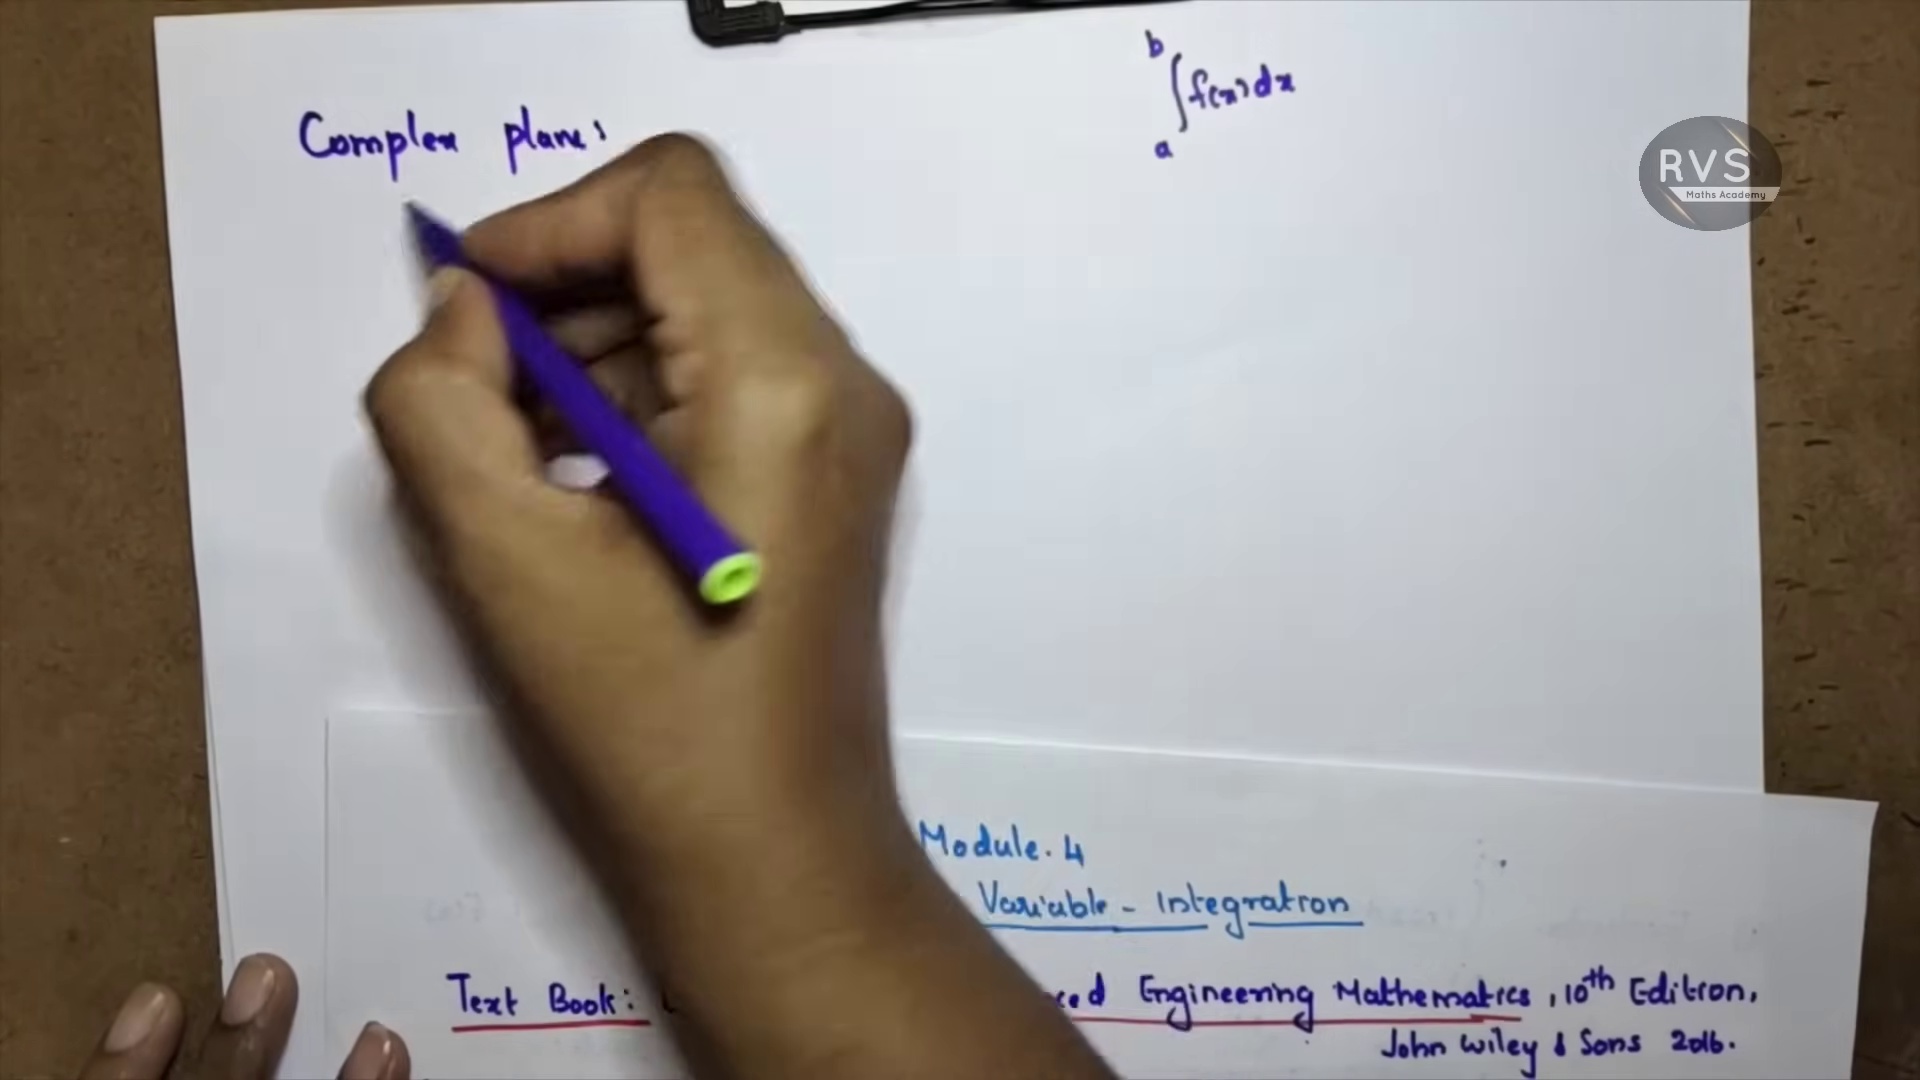 b
∫f(x)dx
a
Complex plane:
RVS
Maths Academy
Module. 4
Variable - Integration
Text Book: Engineering Mathematics, 10th Edition,
John Wiley & Sons 2016.